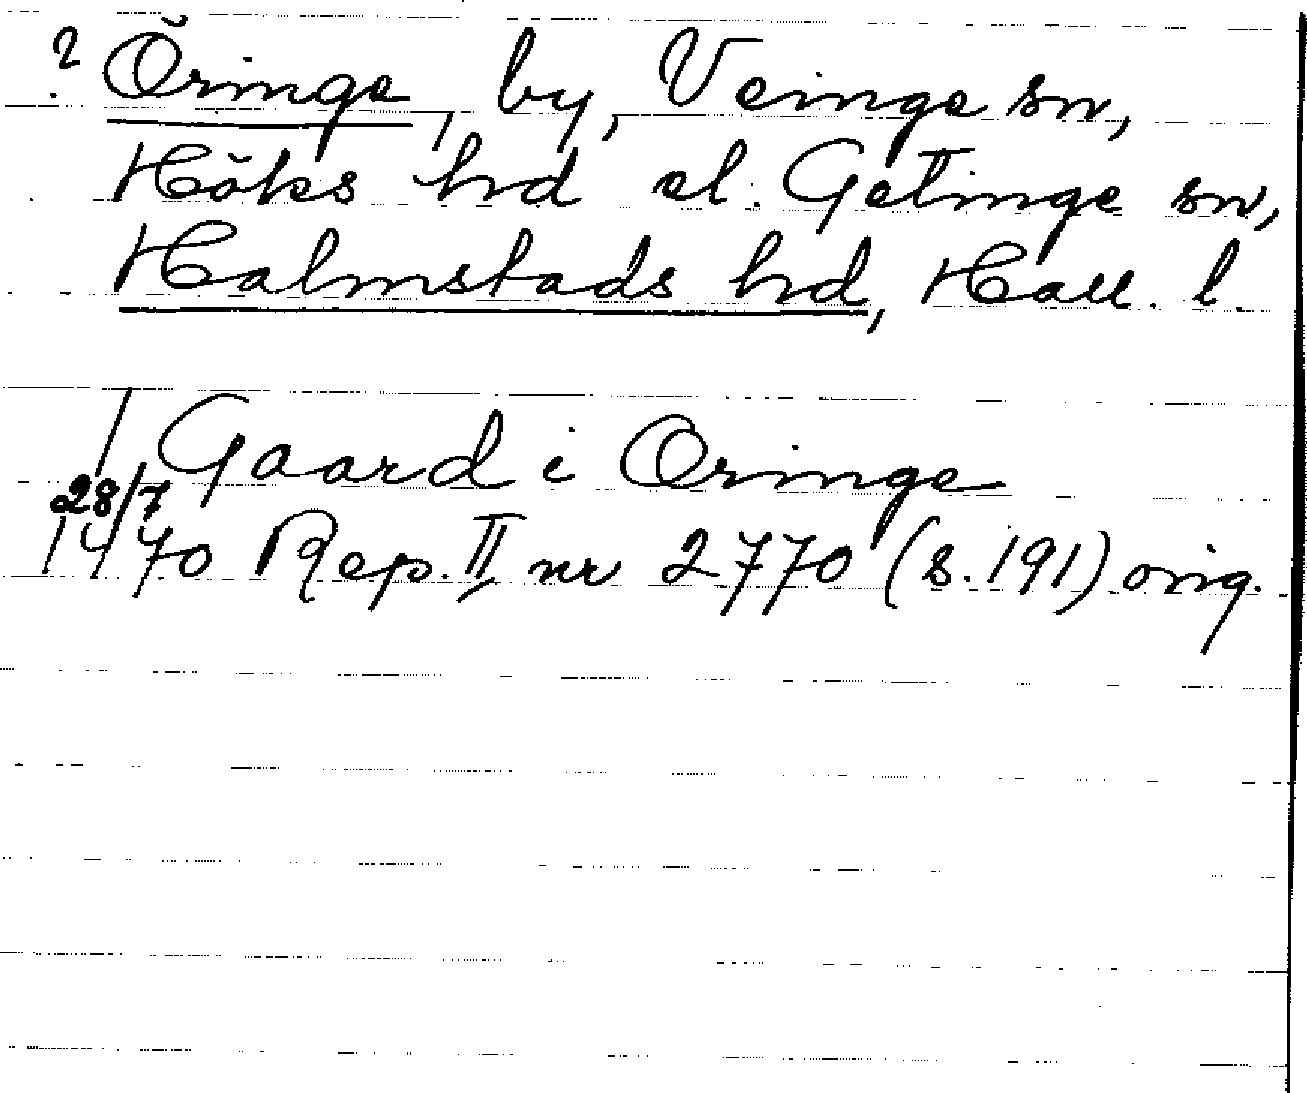 ? Öringe, by, Veinge sn,
Höks hd el. Getinge sn,
Halmstads hd, Hall. l.
/ Gaard i Oringe
28/7
1470 Rep. II, nr 2770 (s. 191) orig.